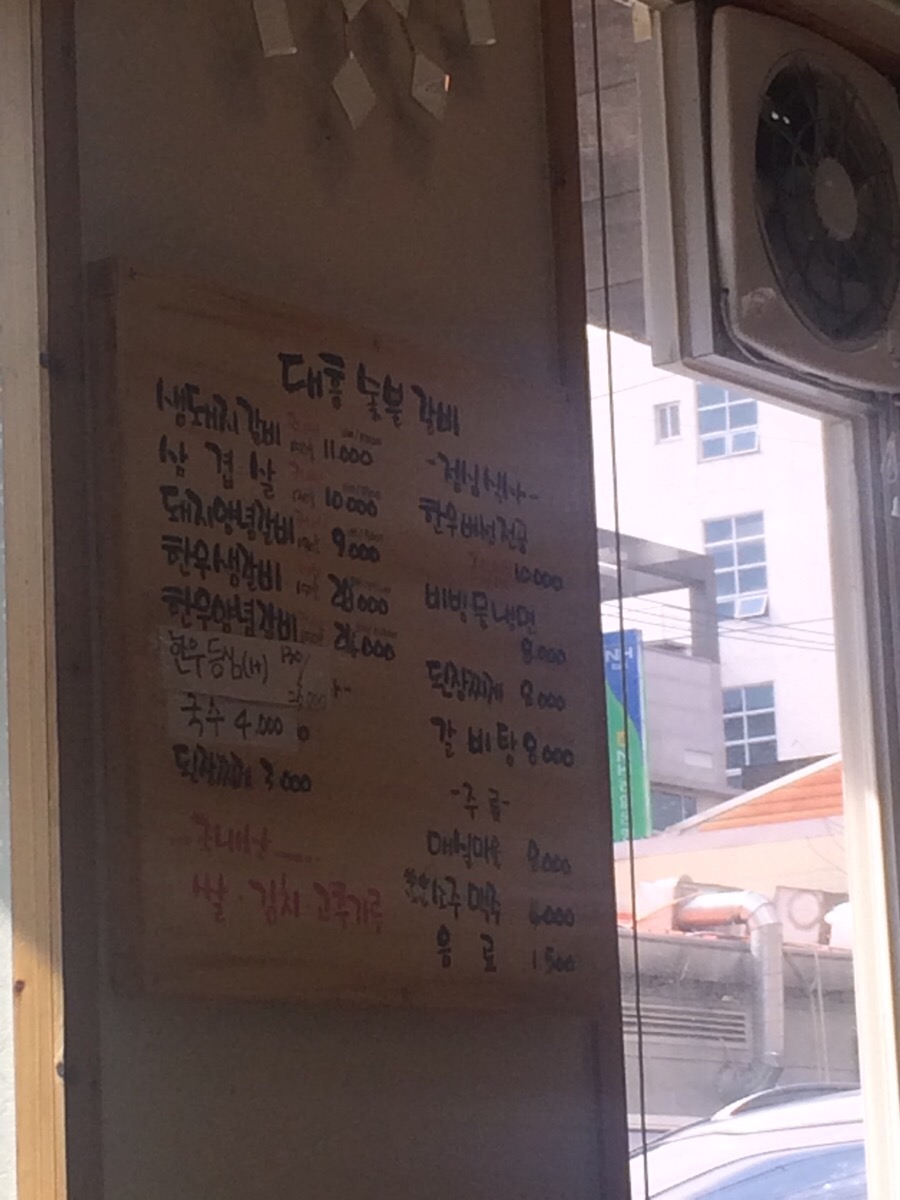 대흥 숯불갈비
생돼지갈비 11.000
삼겹살 10.000
돼지양념갈비 9.000
한우생갈비 28.000
한우양념갈비 24.000
한우등심(1+) 130g
국수 4.000
된장찌개 3.000
국내산
쌀·김치 고추가루
-점심식사-
한우버섯전골
10.000
비빔물냉면
8.000
된장찌개 8.000
갈비탕 8.000
-주류-
매실마을 8.000
소주 맥주 4.000
음료 1.500
NH